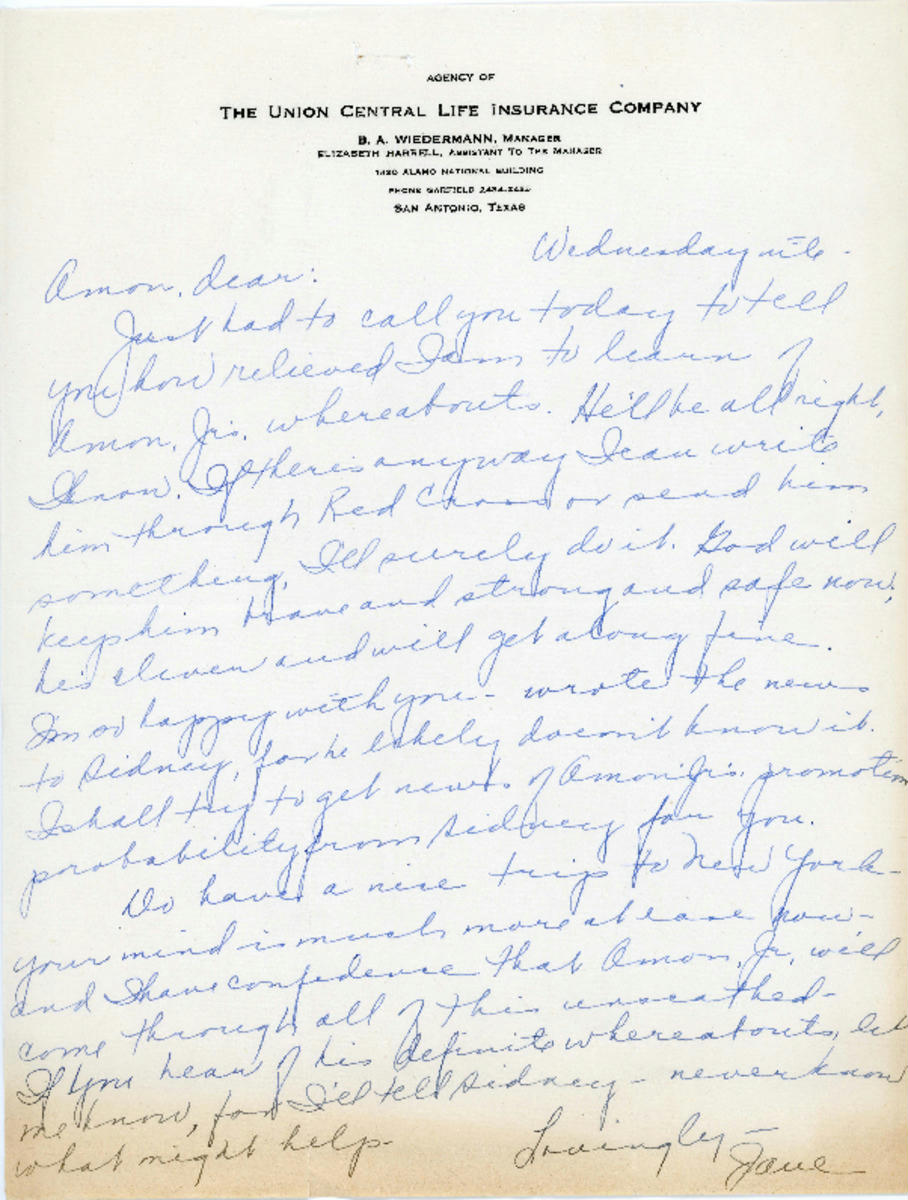 AGENCY OF
THE UNION CENTRAL LIFE INSURANCE COMPANY
B. A. WIEDERMANN, MANAGER
ELIZABETH HARRELL, ASSISTANT TO THE MANAGER
ALAMO NATIONAL BUILDING
PHONE GARFIELD
SAN ANTONIO, TEXAS
Wednesday nite -
Amon, dear:
Just had to call you today to tell
you how relieved I am to learn of
Amon, Jr's. whereabouts. He'll be all right,
I know. If there is anyway I can write
him through Red Cross or send him
something, I'll surely do it. God will
keep him brave and strong and safe now,
he's clever and will get along fine.
I'm so happy with you - wrote the news
to Sidney, for he likely doesn't know it.
I shall try to get news of Amon Jr's. promotion
probability from Sidney for you.
Do have a nice trip to New York -
your mind is much more at ease now -
and I have confidence that Amon, Jr. will
come through all of this unscathed -
If you hear of his definite whereabouts, let
me know, for I'll tell Sidney - never know
what might help -
Lovingly -
Jane